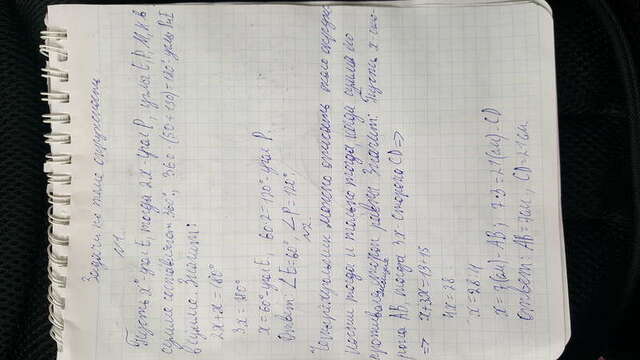 Задачи по теме окружность
№1.
Пусть x°-угол E, тогда 2x-угол P, углы E, P, M, K в
сумме составляют 360°, 360-(50+130)=180° углы P и E
в сумме. Значит:
2x+x=180°
3x=180°
x=60°-угол E, 60·2=120°-угол P.
Ответ: ∠E=60°, ∠P=120°.
№2.
Четырёхугольник можно описать около окруж-
ности тогда и только тогда, когда сумма его
противоположащих сторон равны. Значит: Пусть x-сто-
рона AB, тогда 3x-сторона CD =>
=> x+3x=13+15
4x=28
x=28:4
x=7(см)-AB; 7·3=21(см)-CD
Ответ: AB=7см, CD=21см.